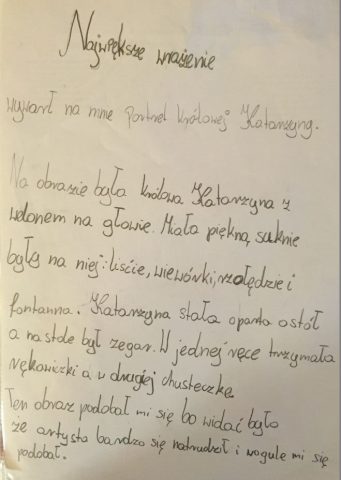 Największe wrażenie
wywarł na mnie portret królowej Katarzyny.
Na obrazie była królowa Katarzyna z
welonem na głowie. Miała piękną suknie
były na niej: liście, wiewórki, rzołędzie i
fontanna. Katarzyna stała oparta o stół
a na stole był zegar. W jednej ręce trzymała
rękawiczki a w drugiej chusteczkę.
Ten obraz podobał mi się bo widać było
ze artysta bardzo się natrudził i wogule mi się
podobał.